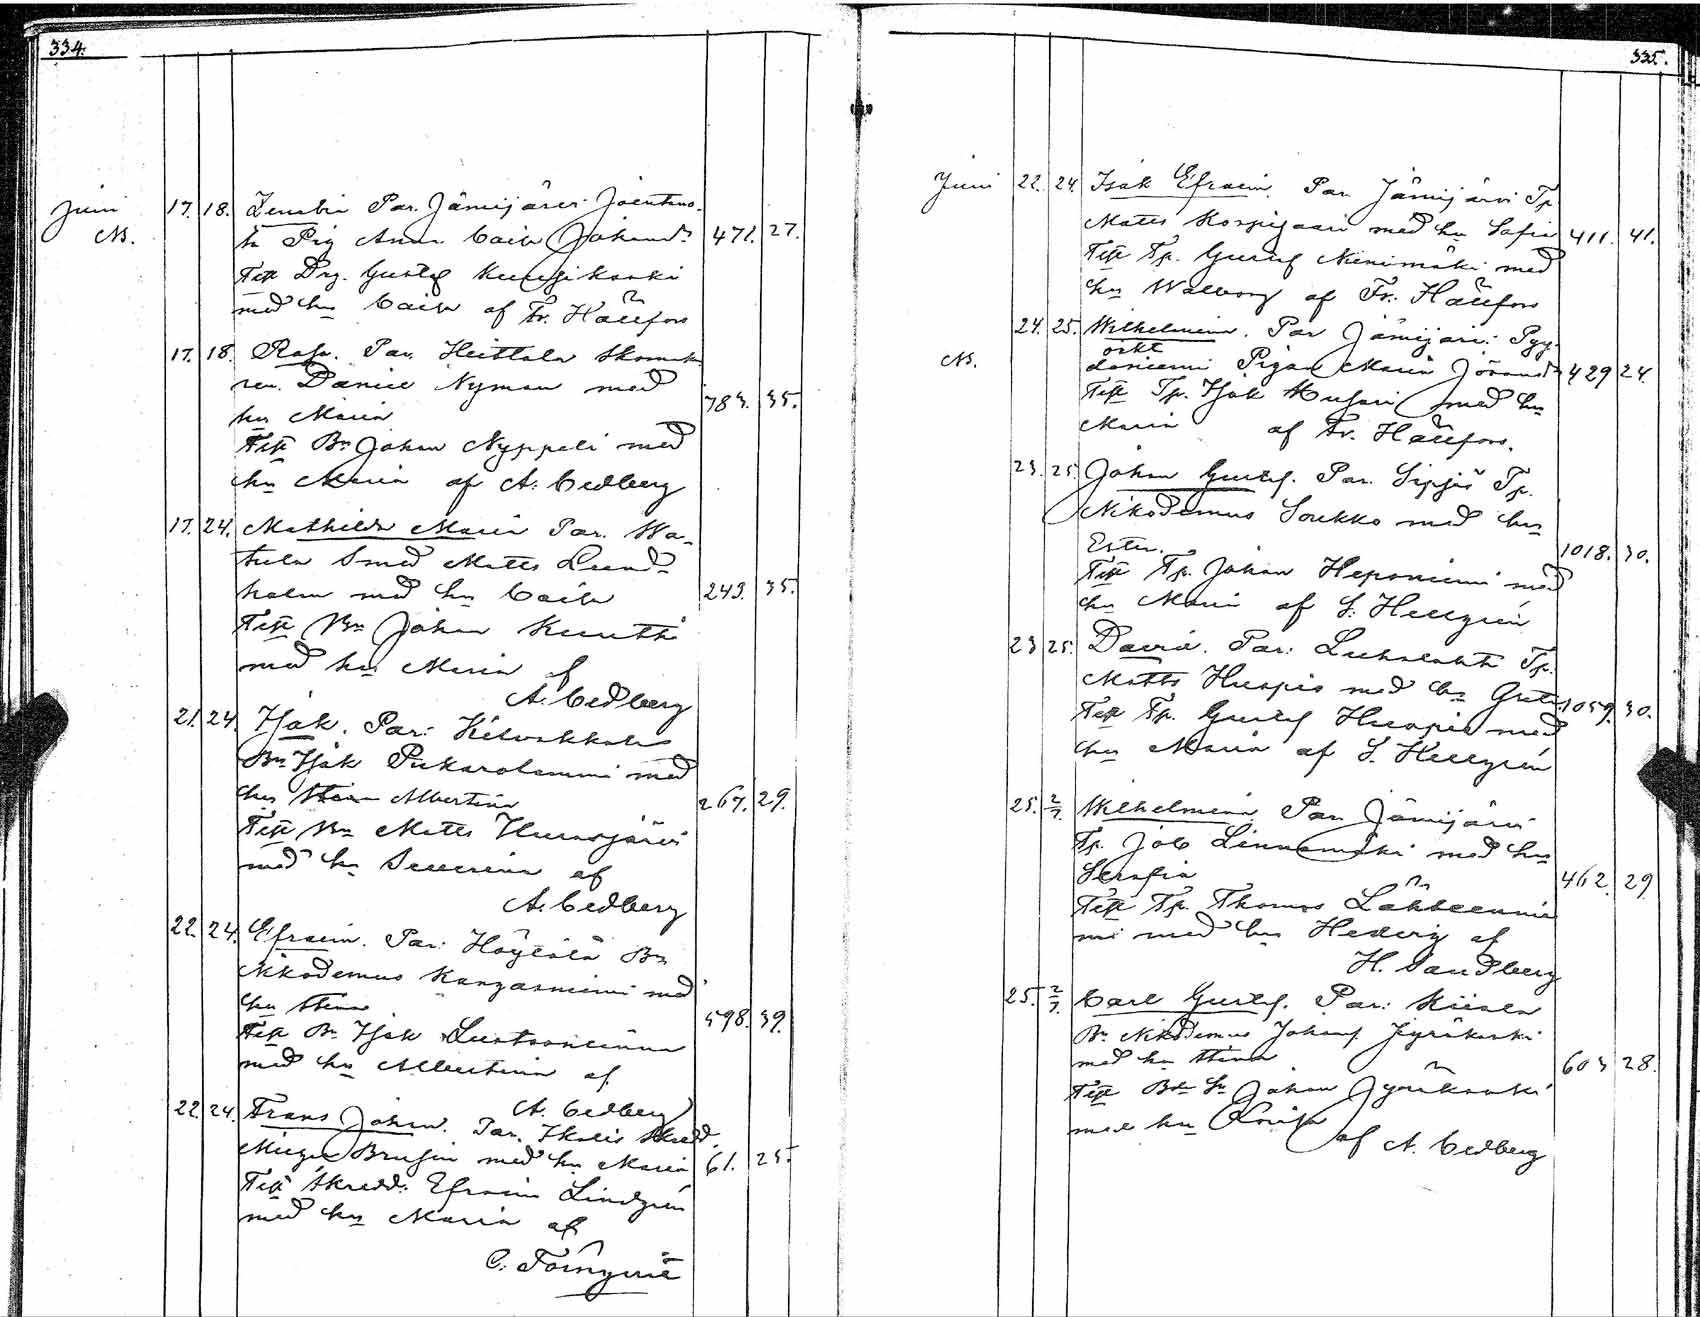 334.
Juni 17. 18. Par. Jämijärvi
NB. Pig Anna Cajsa Johansdr 471. 27.
Test Drg. Gustaf
med hu Cajsa af Fr. Hällfors
17. 18. Rosa. Par. Heittola Skomak-
ren Daniel Nyman med 783. 35.
hu Maria
Test Bn Johan Nyppeli med
hu Maria af A. Cedberg
17. 24. Mathilda Maria Par. Wa-
tula Smed Matts Lund-
holm med hu Cajsa 243. 35.
Test Bn Johan Knuuti
med hu Maria af
A. Cedberg
21. 24. Isak. Par: Kilvakkala
Bn Isak med
hu Stina Albertina 267. 29.
Test Bn Matts
med hu Severina af
A. Cedberg
22. 24. Efraim. Par: Höytölä Bn
Nikodemus Kangasniemi med
hu Stina 598. 39.
Test Bn Isak
med hu Albertina af
A. Cedberg
22. 24. Frans Johan. Par. Ikalis Skredd.
Brusin med hu Maria 61. 25.
Test Skredd. Efraim Lindgren
med hu Maria af
C. Törngren
335.
Juni 22. 24. Isak Efraim. Par. Jämijärvi Tp.
Matts Korpijaari med hu Sofia 411. 41.
Test Tp. Gustaf Niinimäki med
hu Walborg af Fr. Hällfors
24. 25. Wilhelmina. Par Jämijärvi: Pyy-
oäkt
NB. laniemi Pigan Maria 429 24.
Test Tp. Isak med hu
Maria af Fr. Hällfors.
23. 25. Johan Gustaf. Par. Sipsiö Tp.
Nikodemus Soukko med hu
Ester. 1018. 30.
Test Tp. Johan Heponiemi med
hu Maria af S. Hellgrén
23 25. David. Par: Luhalahti Tp.
Matts med hu Greta 1059. 30.
Test Tp. Gustaf med
hu Maria af S. Hellgrén
25. 2/7. Wilhelmina Par Jämijärvi
Tp. Job Linnamäki med hu
Serafia 462. 29
Test Tp. Thomas Lähteennie
mi med hu Hedvig af
H. Sandberg
25. 2/7. Carl Gustaf. Par: Kiisala
Bn Nikodemus Johanss. Jyräkoski
med hu Stina 603 28.
Test Bn Johan Jyräkoski
med hu Lovisa
af A. Cedberg